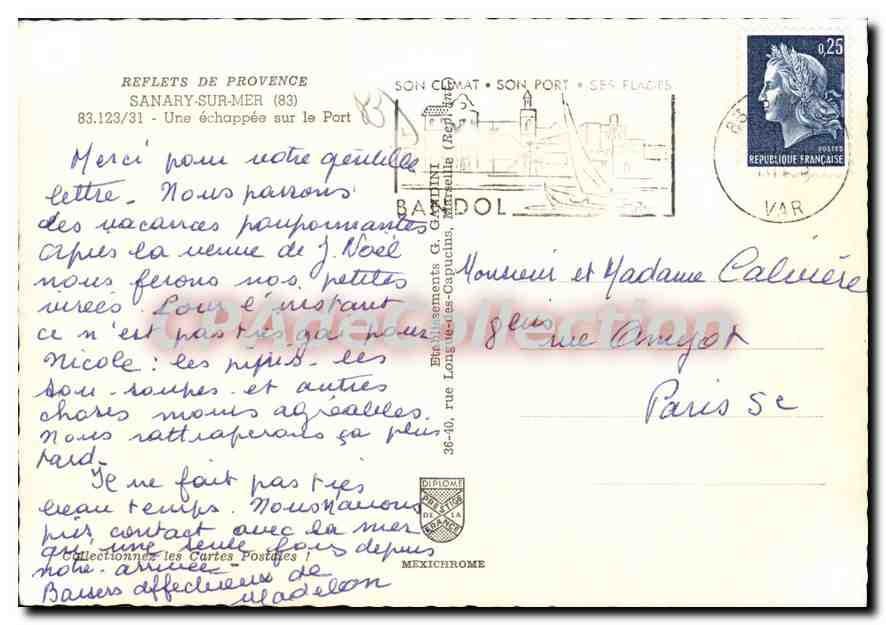 REFLETS DE PROVENCE
SANARY-SUR-MER (83)
83.123/31 - Une échappée sur le Port
Merci pour votre gentille
lettre. Nous passons
des vacances pouponnantes
après la venue de J. Noël
nous ferons nos petites
virées. Pour l'instant
ce n'est pas très gai pour
Nicole : les pipis - les
sou-soupes et autres
choses moins agréables.
Nous rattraperons ça plus
tard.
Il ne fait pas très
beau temps. Nous n'avons
pris contact avec la mer
qu'une seule fois depuis
notre arrivée
Baisers affectueux de
Madelon
Collectionnez les Cartes Postales !
Etablissements G. GANDINI
36-40, rue Longue-des-Capucins, Marseille (Repr. Int.)
DIPLOME
PRESTIGE
DE LA
FRANCE
MEXICHROME
SON CLIMAT • SON PORT • SES PLAGES
BANDOL
83
VAR
0,25
POSTES
REPUBLIQUE FRANÇAISE
Monsieur et Madame Calvière
8 bis rue Amyot
Paris 5e
CPADeCollection